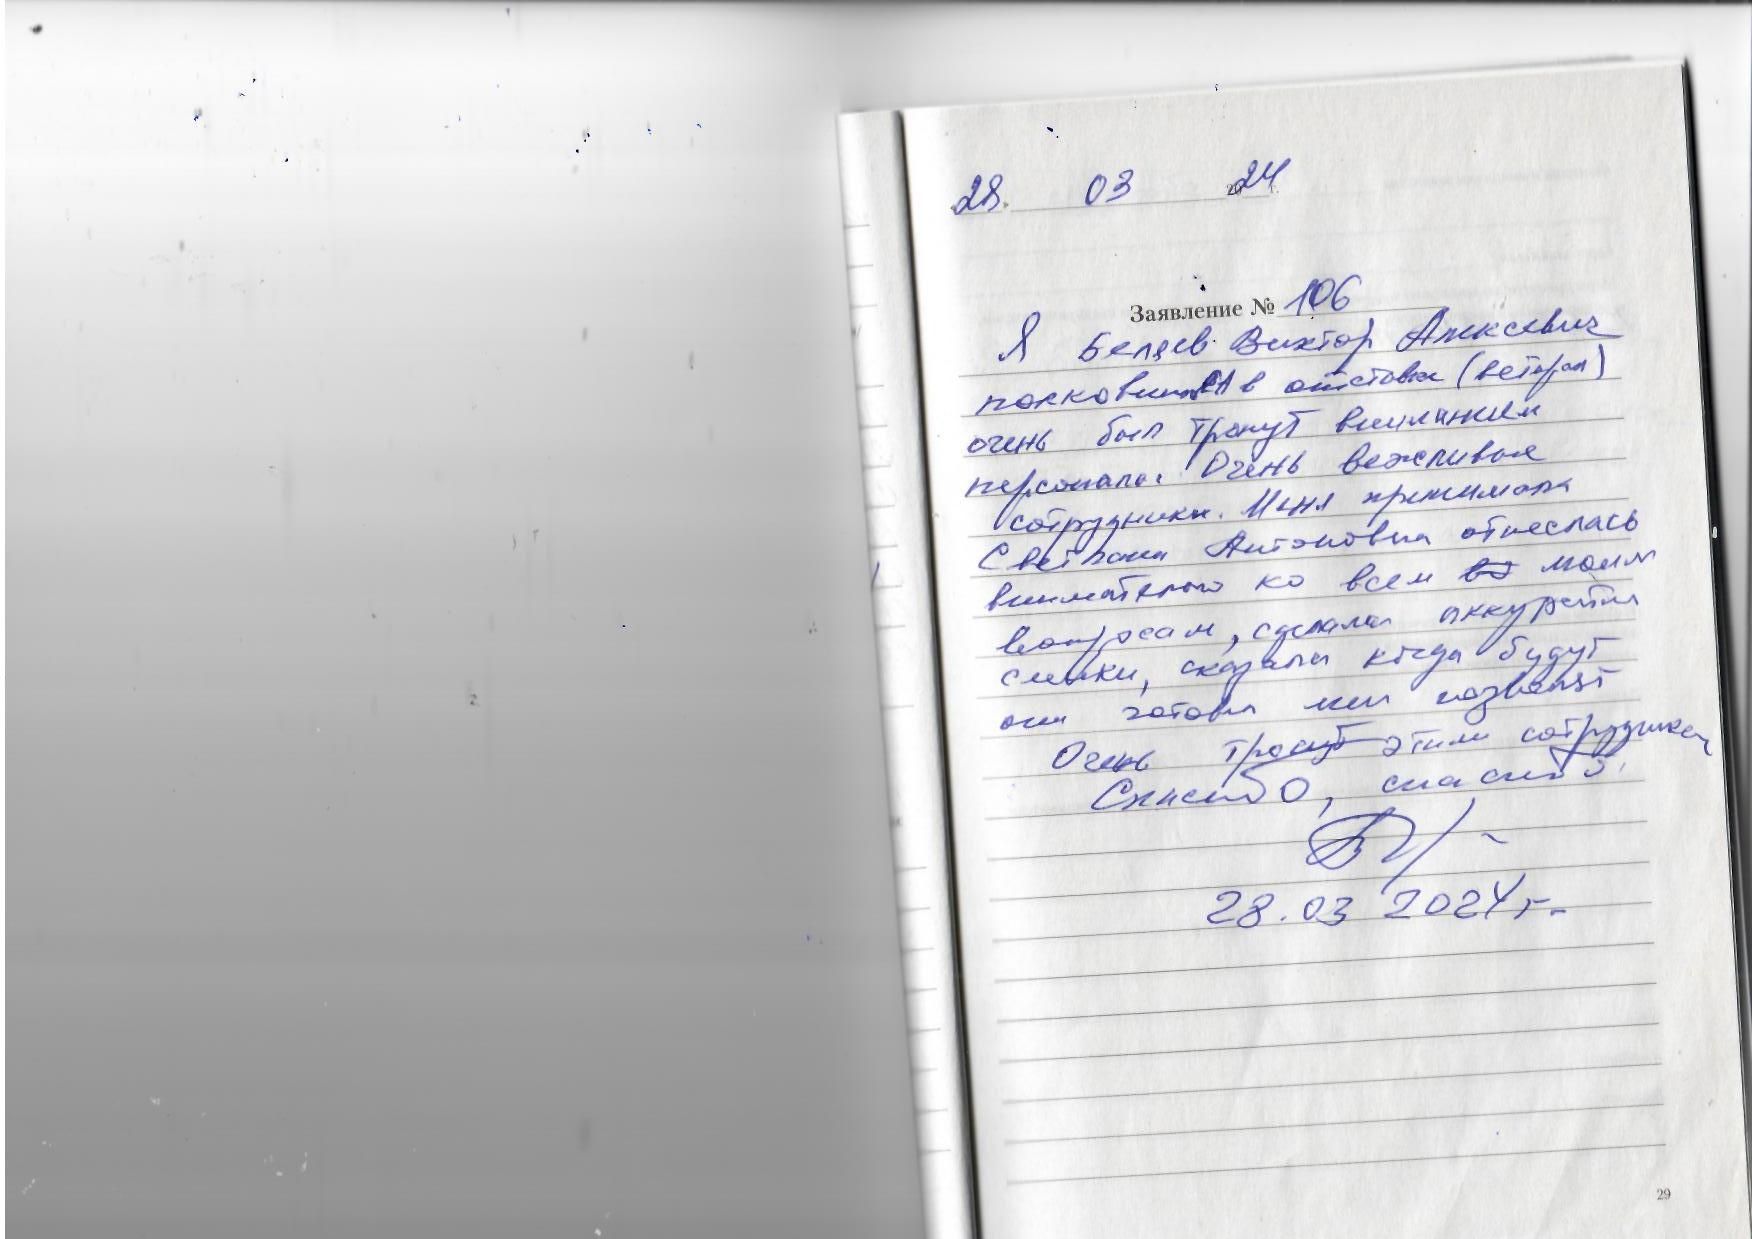 28. 03 2024 г.
Заявление № 106
Я Беляев Виктор Алексеевич
полковник СА в отставке (ветеран)
очень был тронут вниманием
персонала. Очень вежливые
сотрудники. Меня принимала
Светлана Антоновна отнеслась
внимательно ко всем моим
вопросам, сделала аккуратно
снимки, сказала когда будут
они готовы мне позвонят
Очень тронут этими сотрудниками
Спасибо, спасибо.
28.03 2024 г.
29